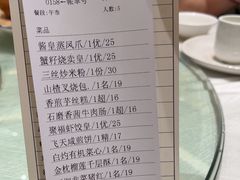 0158-
餐段:午市 人数:5
菜品
酱皇蒸凤爪/1优/25
蟹籽烧卖皇/1优/25
三丝炒米粉/1份/30
山楂叉烧包./1名/19
香煎芋丝糕/1超/16
石磨香茜牛肉肠/1超/16
聚福虾饺皇/1优/25
飞天咸煎饼/1精/17
白灼有机菜心/1名/19
金枕榴莲千层酥/1名/19
/1名/19